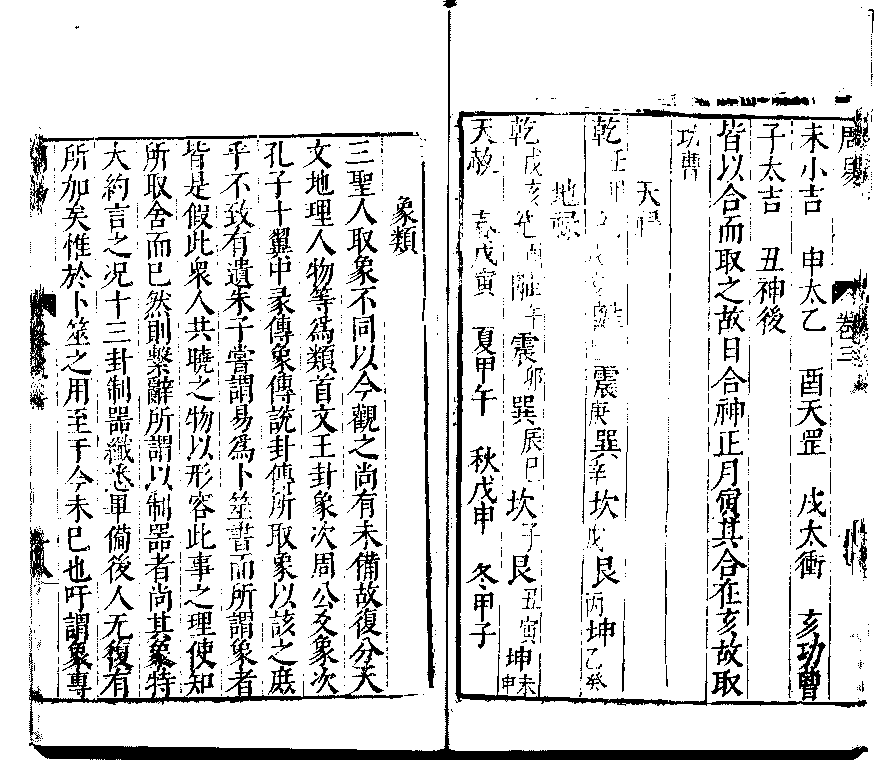 周易
卷三
未小吉 申太乙 酉天罡 戌太衝 亥功曹
子太吉 丑神後
皆以合而取之故日合神正月寅其合在亥故取
功曹
天
乾壬甲 離 震庚巽辛坎戊艮丙坤乙癸
地祿
乾戌亥兌酉離午震卯巽辰巳坎子艮丑寅坤未申
天赦 春戊寅 夏甲午 秋戊申 冬甲子
象類
三聖人取象不同以今觀之尚有未備故復分天
文地理人物等爲類首文王卦象次周公爻象次
孔子十翼中彖傳象傳說卦傳所取象以該之庶
乎不致有遺朱子嘗謂易爲卜筮書而所謂象者
皆是假此衆人共曉之物以形容此事之理使知
所取舍而已然則繫辭所謂以制器者尚其象特
大約言之况十三卦制器纖悉畢備後人无復有
所加矣惟於卜筮之用至于今未已也吁謂象專